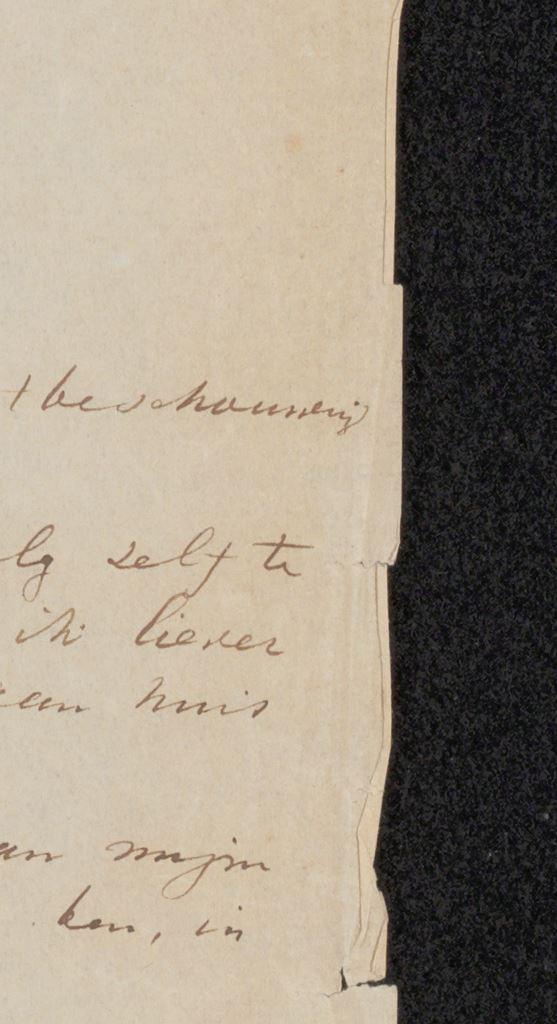 t beschouwing
lg self te
ik liever
aan huis
an mijn
ken, in